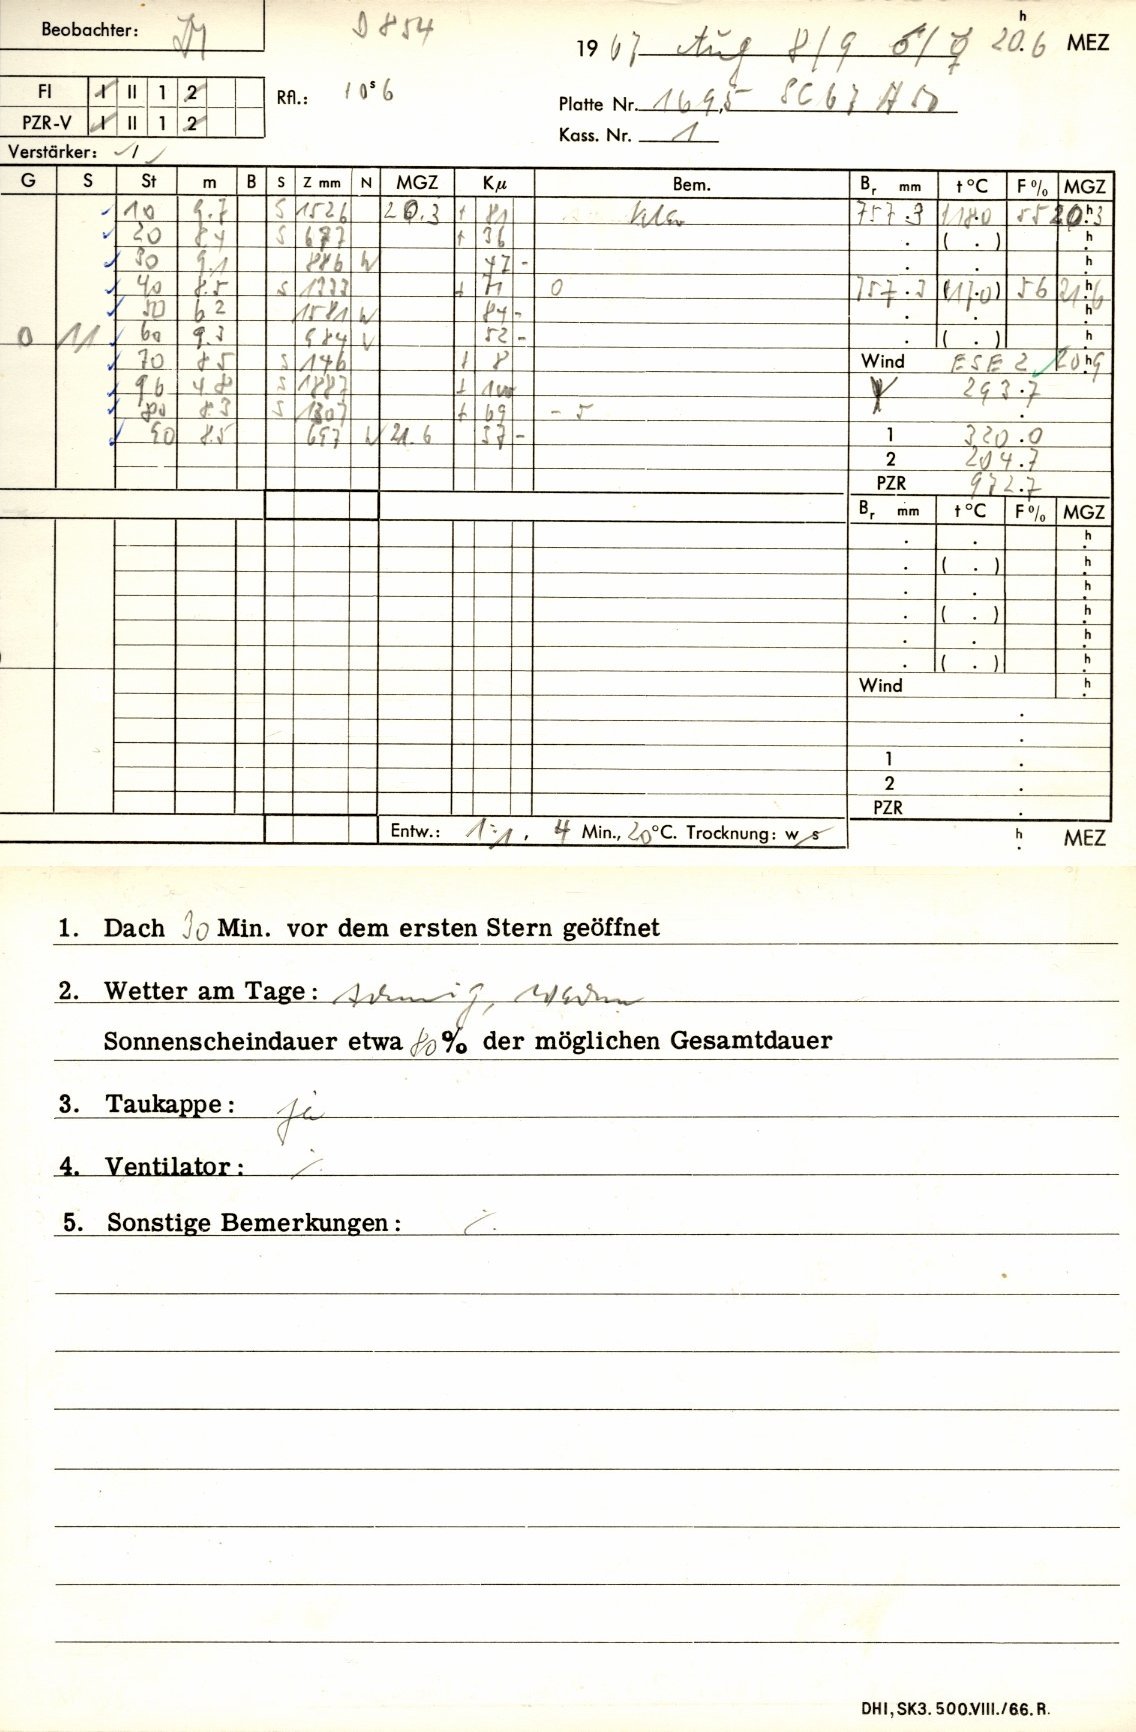 Beobachter: D 854
19 67 Aug 8/9 20.h6 MEZ
FI I II 1 2 Rfl.: 10s6
Platte Nr. 1695 SC67 A50
PZR-V I II 1 2
Kass. Nr. 1
Verstärker: /
G S St m B S Z mm N MGZ Kµ Bem. Br mm t°C F% MGZ
10 9.7 S 1526 20.3 + 81 klar 757.3 118.0 55 20.h3
20 8.4 S 677 + 36 . ( . ) h
30 9.1 886 W 47 - . . h
40 8.5 S 1333 + 71 0 757.3 (17.0) 56 21.h6
50 6.2 1581 W 84 - . . h
0 11 60 9.3 984 W 52 - . ( . ) h
70 8.5 S 146 + 8 Wind ESE 2 20.h9
96 4.8 S 1887 + 100 293.7
80 8.3 S 1307 + 69 - 5 .
90 8.5 697 W 21.6 37 - 1 320.0
2 204.7
PZR 972.7
Br mm t°C F% MGZ
. . h
. ( . ) h
. . h
. ( . ) h
. . h
. ( . ) h
Wind h
.
.
1 .
2 .
PZR .
Entw.: 1:1, 4 Min., 20°C. Trocknung: w/s h MEZ
1. Dach 30 Min. vor dem ersten Stern geöffnet
2. Wetter am Tage: sonnig, warm
Sonnenscheindauer etwa 80% der möglichen Gesamtdauer
3. Taukappe: ja
4. Ventilator: ./.
5. Sonstige Bemerkungen: ./.
DHI, SK3. 500.VIII./66. R.